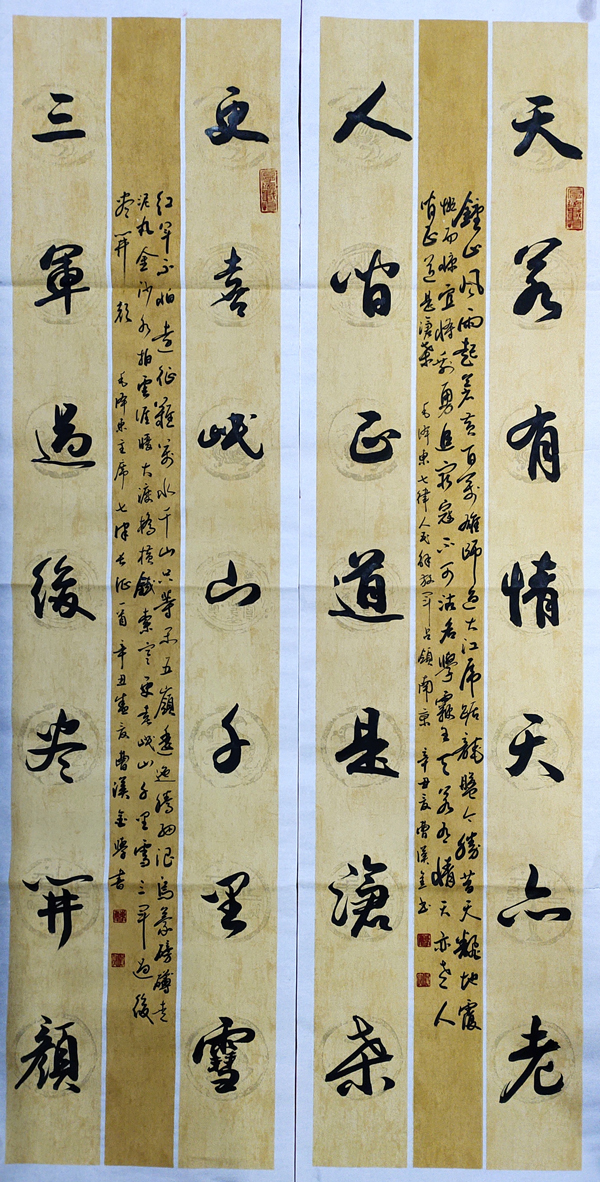 天若有情天亦老
鍾山風雨起蒼黃百萬雄師過大江虎踞龍盤今勝昔天翻地覆
慨而慷宜將剩勇追窮寇不可沽名學霸王天若有情天亦老人
間正道是滄桑 毛澤東七律人民解放軍占領南京 辛丑夏曹漢金書
人間正道是滄桑
更喜岷山千里雪
紅軍不怕遠征難萬水千山只等閒五嶺逶迤騰細浪烏蒙磅礴走
泥丸金沙水拍雲崖暖大渡橋橫鐵索寒更喜岷山千里雪三軍過後
盡開顏 毛澤東主席七律長征一首辛丑盛夏曹漢金學書
三軍過後盡開顏